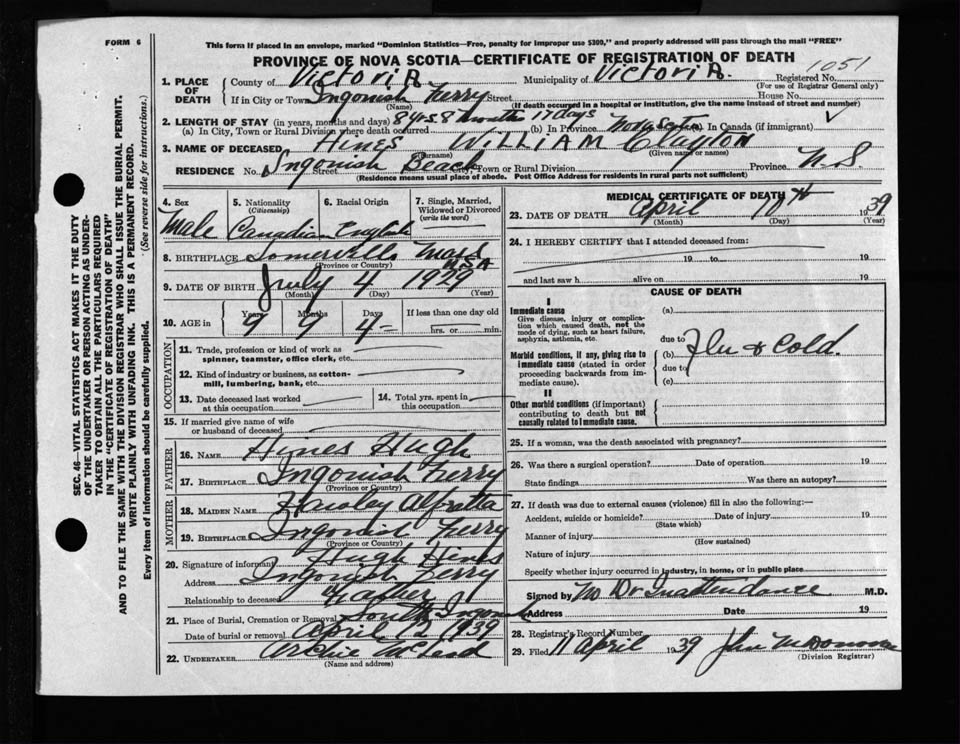 FORM 6
This form if placed in an envelope, marked "Dominion Statistics—Free, penalty for improper use $300," and properly addressed will pass through the mail "FREE"
PROVINCE OF NOVA SCOTIA—CERTIFICATE OF REGISTRATION OF DEATH
1051
1. PLACE OF DEATH County of Victoria Municipality of Victoria. Registered No.
(For use of Registrar General only)
If in City or Town Ingonish Ferry Street House No.
(If death occurred in a hospital or institution, give the name instead of street and number)
2. LENGTH OF STAY (in years, months and days) 8 yrs. 8 months 17 days
(a) In City, Town or Rural Division where death occurred (b) In Province Nova Scotia (c) In Canada (if immigrant)
3. NAME OF DECEASED Hines William Clayton
(Surname) (Given name or names)
RESIDENCE No. Ingonish Beach Street City, Town or Rural Division Province N.S.
(Residence means usual place of abode. Post Office Address for residents in rural parts not sufficient)
4. Sex 5. Nationality (Citizenship) 6. Racial Origin 7. Single, Married, Widowed or Divorced (write the word)
Male Canadian English
8. BIRTHPLACE Mass USA
(Province or Country)
9. DATE OF BIRTH July 4 1929
(Month) (Day) (Year)
10. AGE in Years Months Days If less than one day old
9 9 4 hrs. or min.
OCCUPATION
11. Trade, profession or kind of work as spinner, teamster, office clerk, etc.
12. Kind of industry or business, as cotton-mill, lumbering, bank, etc.
13. Date deceased last worked at this occupation 14. Total yrs. spent in this occupation
15. If married give name of wife or husband of deceased
FATHER
16. NAME Hines Hugh
17. BIRTHPLACE Ingonish Ferry
(Province or Country)
MOTHER
18. MAIDEN NAME
19. BIRTHPLACE Ingonish Ferry
(Province or Country)
20. Signature of informant Hugh Hines
Address Ingonish Ferry
Relationship to deceased Father
21. Place of Burial, Cremation or Removal South Ingonish
Date of burial or removal April 12 1939
22. UNDERTAKER Archie McLeod
(Name and address)
MEDICAL CERTIFICATE OF DEATH
23. DATE OF DEATH April 1939
(Month) (Day)
24. I HEREBY CERTIFY that I attended deceased from:
19 to 19
and last saw h alive on 19
CAUSE OF DEATH
I
Immediate cause
Give disease, injury or complication which caused death, not the mode of dying, such as heart failure, asphyxia, asthenia, etc.
(a)
due to
Morbid conditions, if any, giving rise to immediate cause (stated in order proceeding backwards from immediate cause).
(b) Flu & Cold.
due to
(c)
II
Other morbid conditions (if important) contributing to death but not causally related to immediate cause.
25. If a woman, was the death associated with pregnancy?
26. Was there a surgical operation? Date of operation 19
State findings Was there an autopsy?
27. If death was due to external causes (violence) fill in also the following:—
Accident, suicide or homicide? Date of injury 19
(State which)
Manner of injury
(How sustained)
Nature of injury
Specify whether injury occurred in industry, in home, or in public place
Signed by No Dr In attendance M.D.
Address Date 19
28. Registrar's Record Number
29. Filed 11 April 1939
(Division Registrar)
SEC. 46—VITAL STATISTICS ACT MAKES IT THE DUTY
OF THE UNDERTAKER OR PERSON ACTING AS UNDERTAKER
TO OBTAIN ALL THE PARTICULARS REQUIRED
IN THE "CERTIFICATE OF REGISTRATION OF DEATH"
AND TO FILE THE SAME WITH THE DIVISION REGISTRAR WHO SHALL ISSUE THE BURIAL PERMIT.
WRITE PLAINLY WITH UNFADING INK. THIS IS A PERMANENT RECORD.
Every item of information should be carefully supplied. (See reverse side for instructions.)